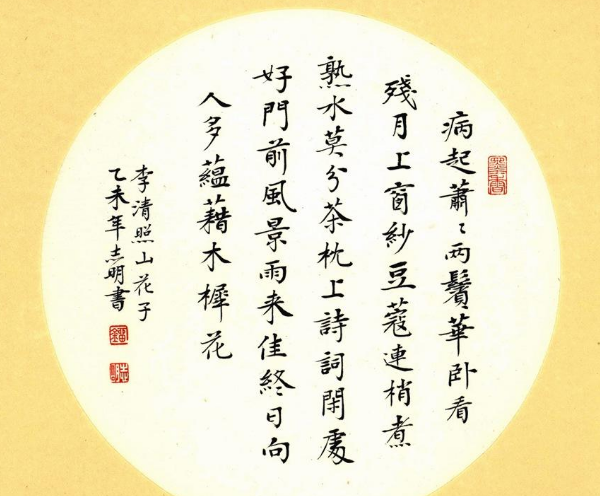 病起蕭〻兩鬢華卧看
殘月上窗紗豆蔻連梢煮
熟水莫分茶枕上詩詞閑處
好門前風景雨来佳終日向
人多蘊藉木樨花
李清照山花子
乙未年志明書